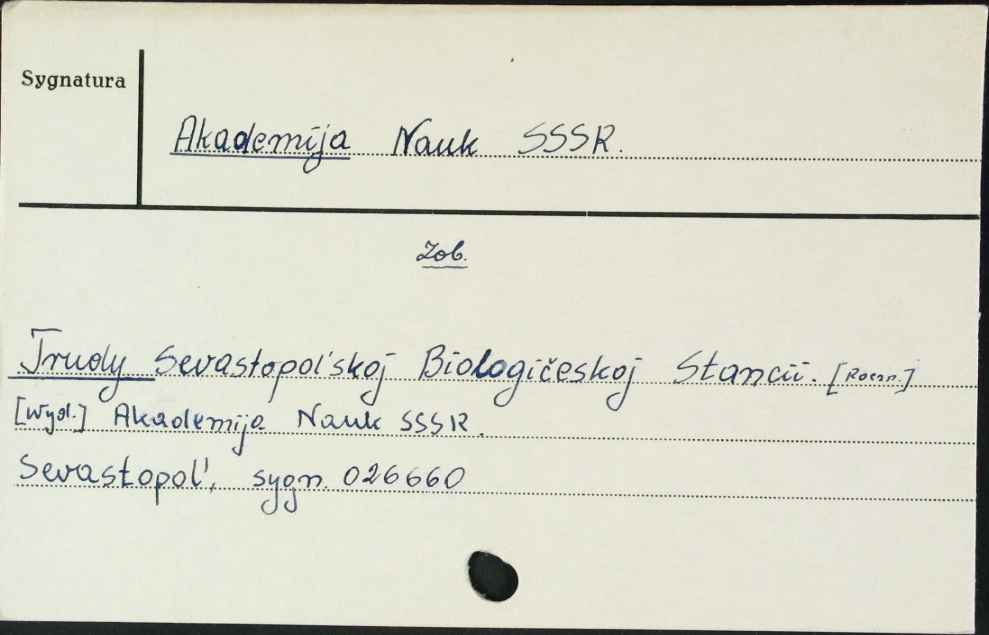 Sygnatura
Akademija Nauk SSSR.
Zob.
Trudy Sevastopol'skoj Biologičeskoj Stancii. [Roczn.]
[Wyd.] Akademija Nauk SSSR.
Sevastopol', sygn. 026660